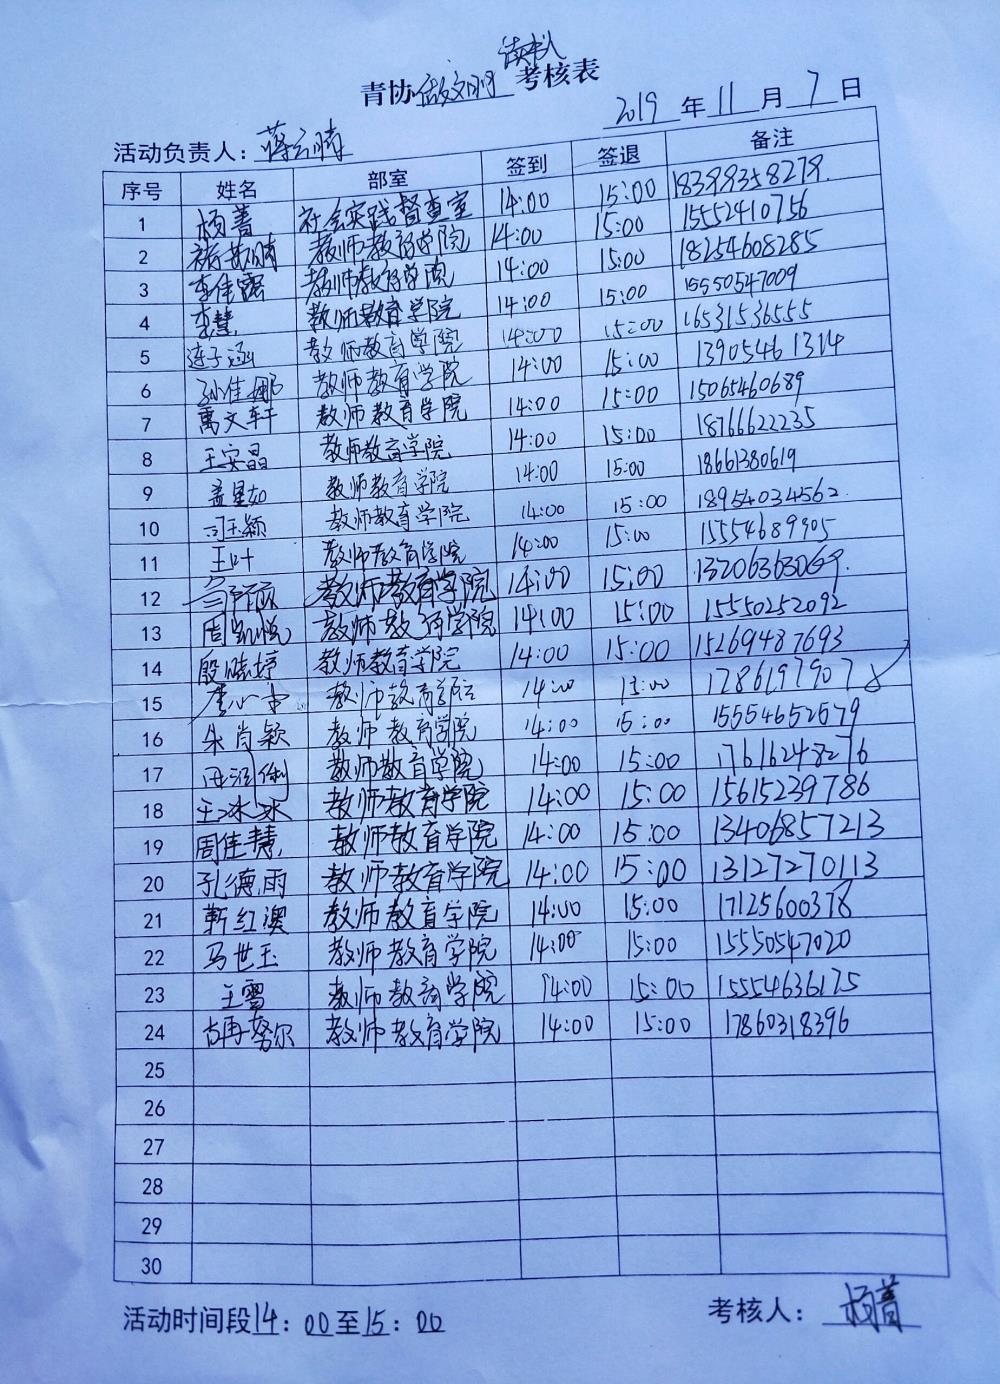 读书人
青协做文明考核表
2019年11月7日
活动负责人：蒋云晴
序号 姓名 部室 签到 签退 备注
1 杨菁 社会实践督查室 14:00 15:00 18399358279.
2 教师教育学院 14:00 15:00 15552410756
3 李佳露 教师教育学院 14:00 15:00 18254608285
4 李慧 教师教育学院 14:00 15:00 15550547009
5 连子涵 教师教育学院 14:00 15:00 16531536555
6 孙佳娜 教师教育学院 14:00 15:00 13905461314
7 禹文轩 教师教育学院 14:00 15:00 15065460689
8 王安晶 教师教育学院 14:00 15:00 18766622235
9 孟星如 教师教育学院 14:00 15:00 18661380619
10 司玉颖 教师教育学院 14:00 15:00 18954034562
11 王叶 教师教育学院 14:00 15:00 15554689905
12 教师教育学院 14:00 15:00 13206363069.
13 周凯悦 教师教育学院 14:00 15:00 15550252092
14 殷晓婷 教师教育学院 14:00 15:00 15269487693
15 教师教育学院 14:00 15:00
16 朱肖颖 教师教育学院 14:00 15:00 15554652579
17 教师教育学院 14:00 15:00 17616248276
18 王冰冰 教师教育学院 14:00 15:00 15615239786
19 周佳慧 教师教育学院 14:00 15:00 13406857213
20 孔德雨 教师教育学院 14:00 15:00 13127270113
21 靳红澳 教师教育学院 14:00 15:00 17125600378
22 马世玉 教师教育学院 14:00 15:00 15550547020
23 王雪 教师教育学院 14:00 15:00 15554636175
24 古再努尔 教师教育学院 14:00 15:00 17860318396
25
26
27
28
29
30
活动时间段14：00至15：00 考核人：杨菁